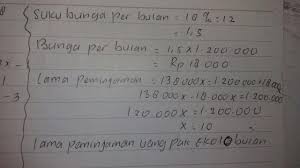 Suku bunga per bulan = 18 % : 12
= 1,5
Bunga per bulan = 1,5 x 1.200.000
= Rp 18 000
Lama peminjaman = 138 000 x = 1.200.000 + 18.000
138.000 x - 18.000 x = 1.200.000
120.000 x = 1.200.000
x = 10
Lama peminjaman yang pak Eko 10 bulan
1
- 3